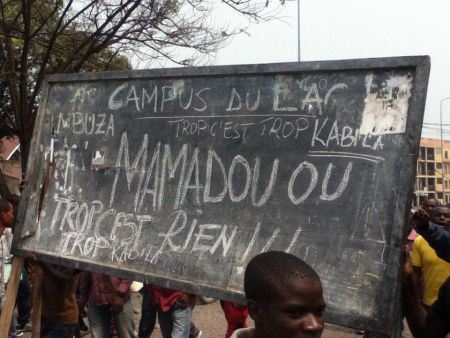 CAMPUS DU LAC
MBUZA TROP C'EST TROP KABILA
MAMADOU OU
RIEN !!!
TROP C'EST
TROP KABILA